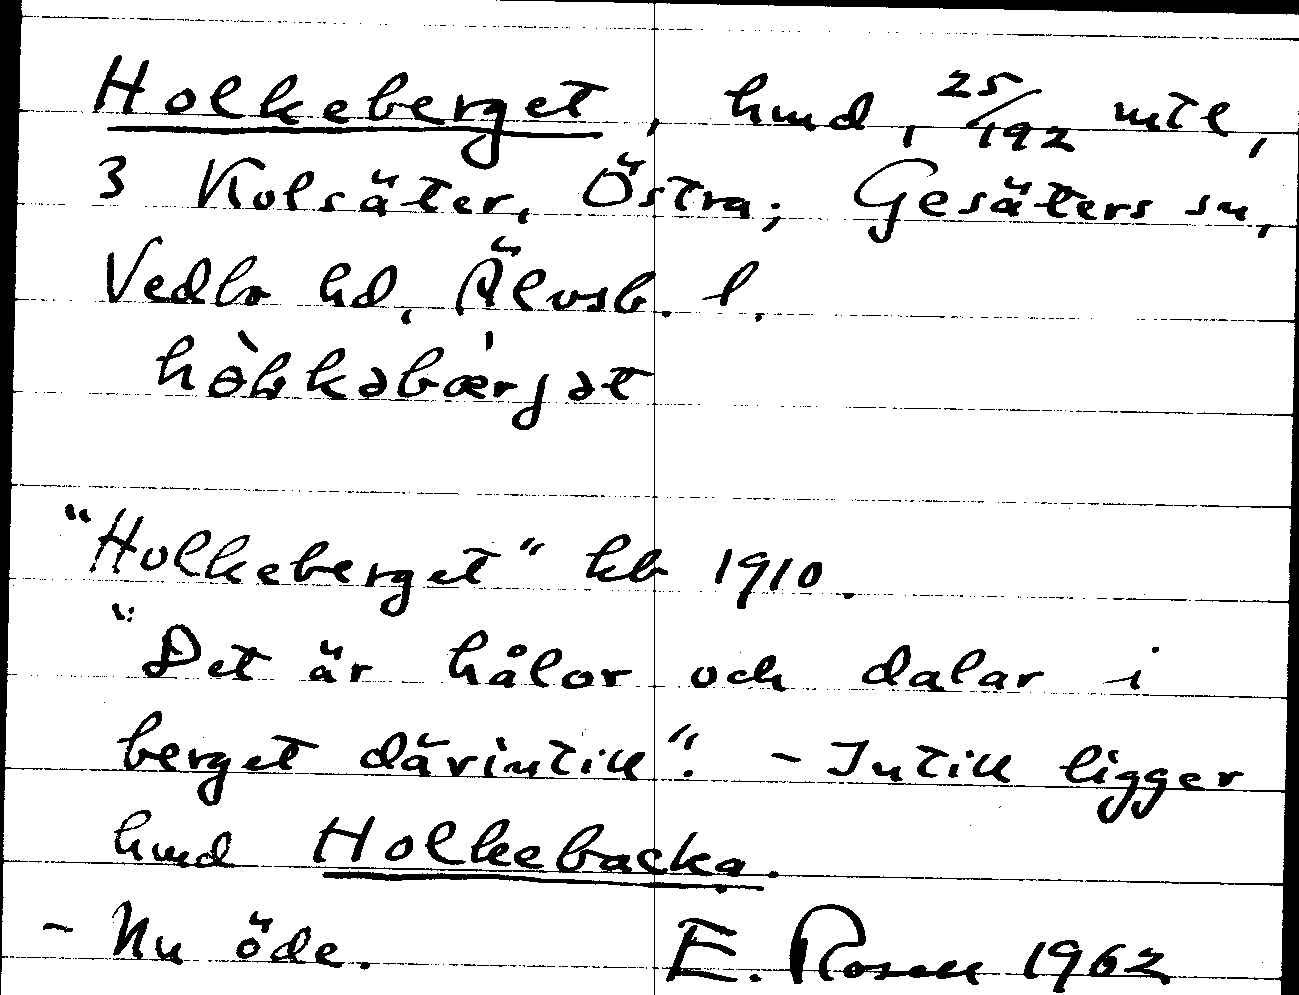 Holkeberget, hmd, 25/192 mtl,
3 Kolsäter, Östra; Gesäters sn,
Vedbo hd, Älvsb. l.
"Holkeberget" kb 1910.
"Det är hålor och dalar i
berget därintill". - Intill ligger
hmd Holkebacka.
- Nu öde. E. Rosell 1962